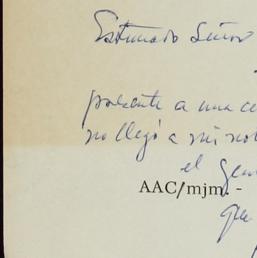 Estimado Señor
presente a una ce
no llegó a mi no
el Gen
AAC/mjm. -
que